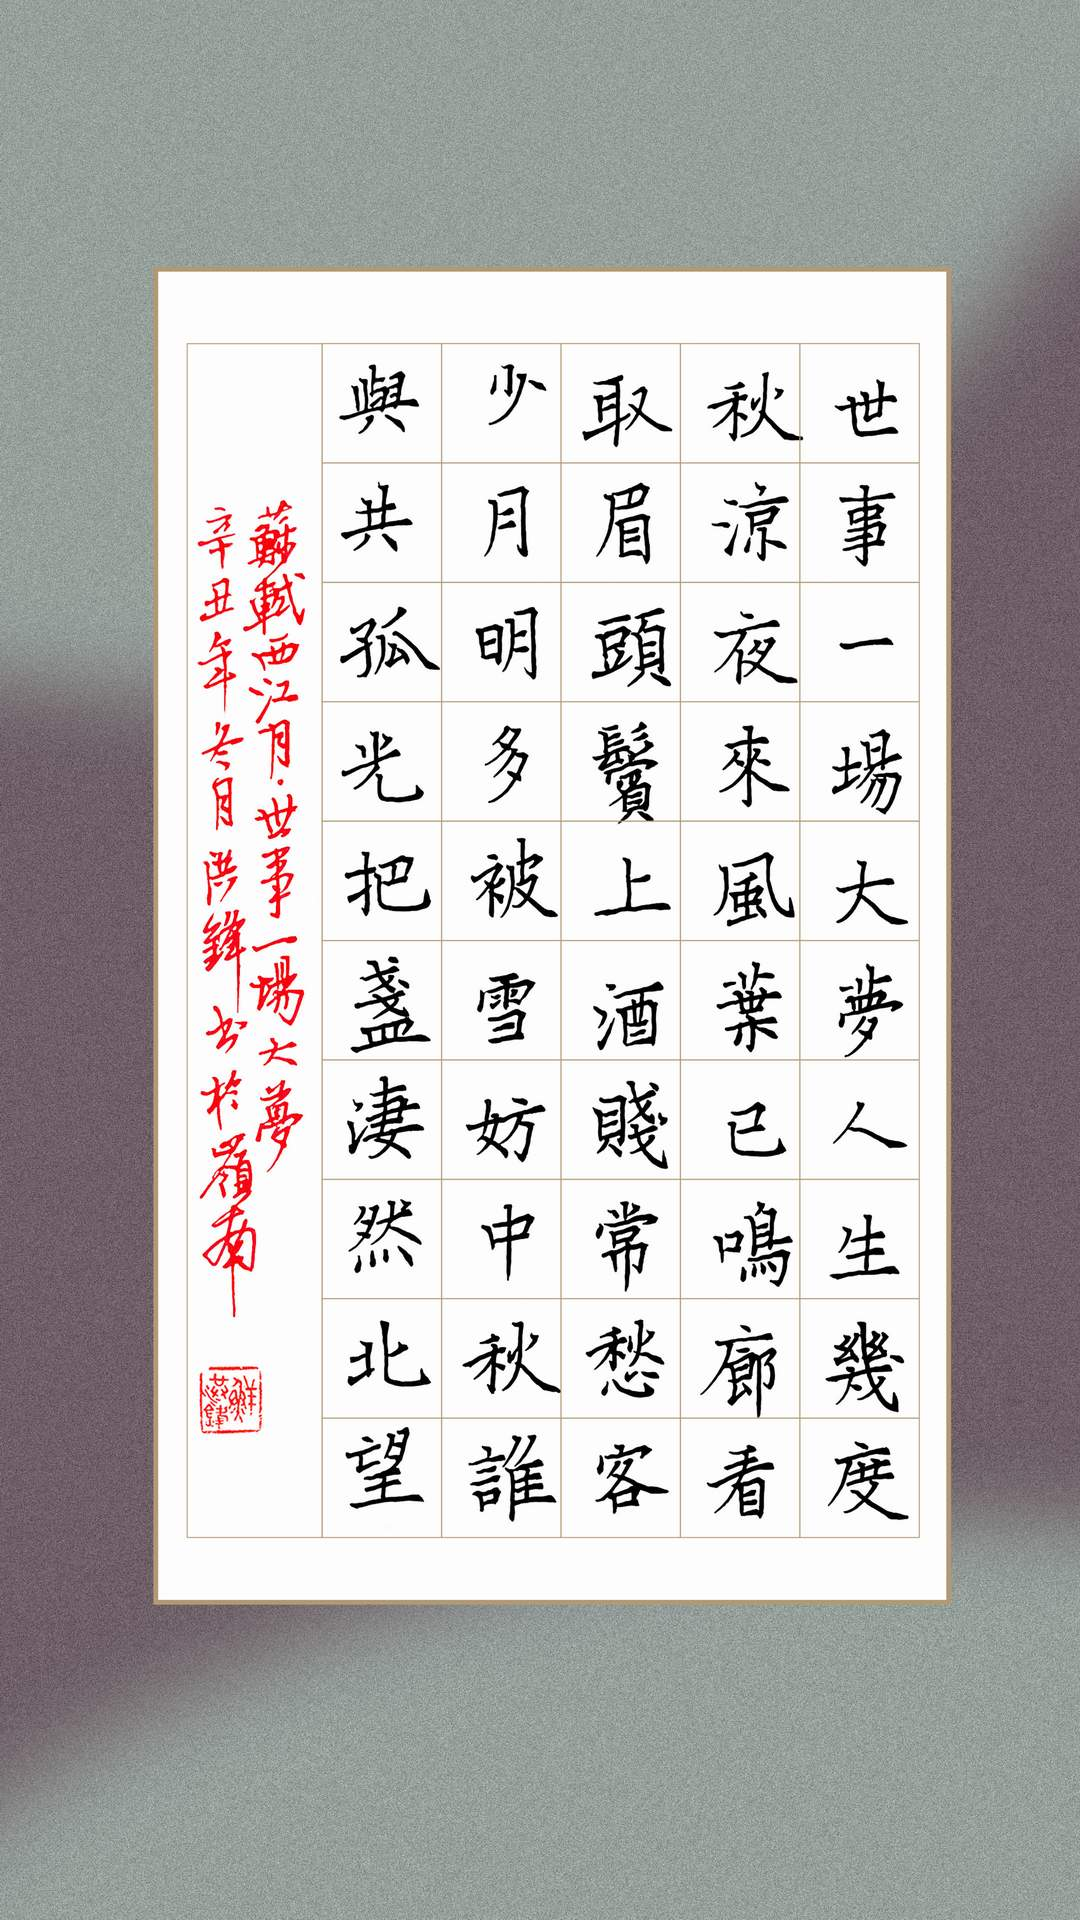 世事一場大夢人生幾度
秋涼夜來風葉已鳴廊看
取眉頭鬢上酒賤常愁客
少月明多被雪妨中秋誰
與共孤光把盞淒然北望
蘇軾西江月·世事一場大夢
辛丑年冬月洪鋒书於嶺南